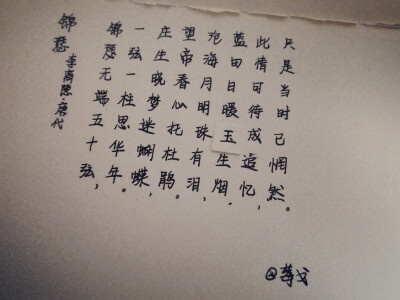 锦瑟
李商隐·唐代
锦瑟无端五十弦，
一弦一柱思华年。
庄生晓梦迷蝴蝶，
望帝春心托杜鹃。
沧海月明珠有泪，
蓝田日暖玉生烟．
此情可待成追忆，
只是当时已惘然。